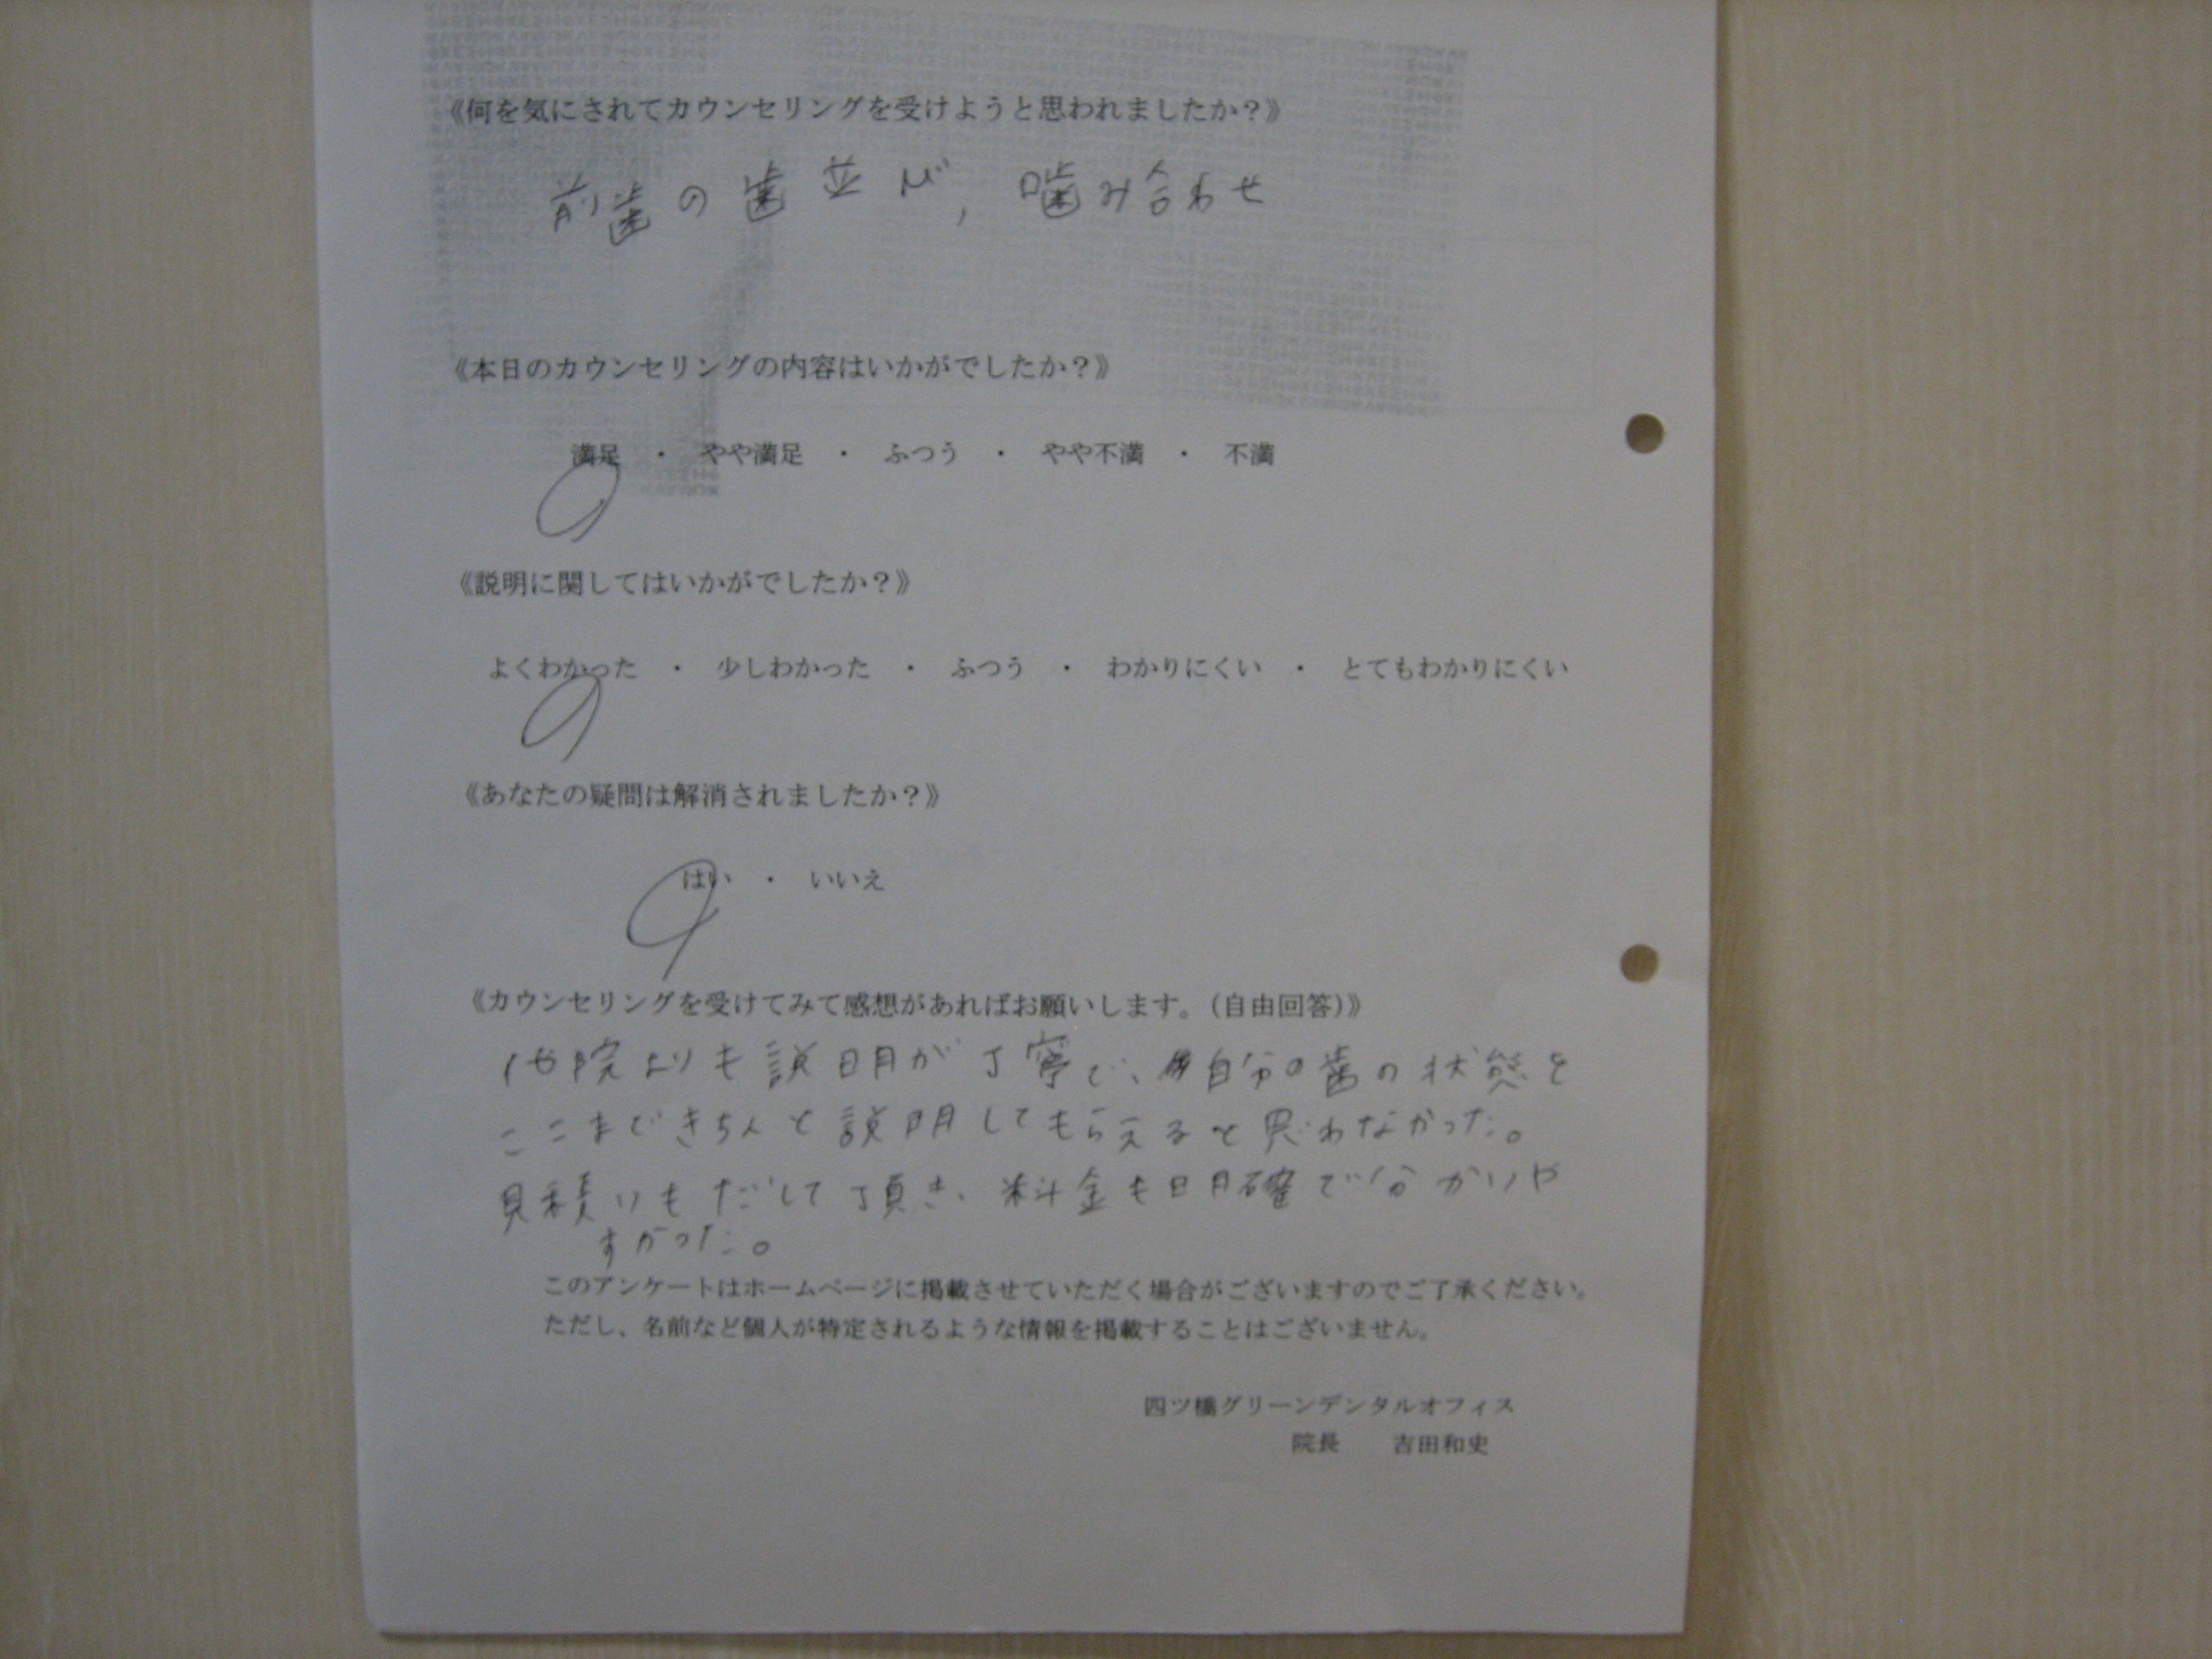 《何を気にされてカウンセリングを受けようと思われましたか？》
前歯の歯並び, 噛み合わせ
《本日のカウンセリングの内容はいかがでしたか？》
満足　・　やや満足　・　ふつう　・　やや不満　・　不満
《説明に関してはいかがでしたか？》
よくわかった　・　少しわかった　・　ふつう　・　わかりにくい　・　とてもわかりにくい
《あなたの疑問は解消されましたか？》
はい　・　いいえ
《カウンセリングを受けてみて感想があればお願いします。（自由回答）》
他院よりも説明が丁寧で、自分の歯の状態を
ここまできちんと説明してもらえると思わなかった。
見積りもだして頂き、料金も明確で分かりや
すかった。
このアンケートはホームページに掲載させていただく場合がございますのでご了承ください。
ただし、名前など個人が特定されるような情報を掲載することはございません。
四ツ橋グリーンデンタルオフィス
院長　　吉田和史